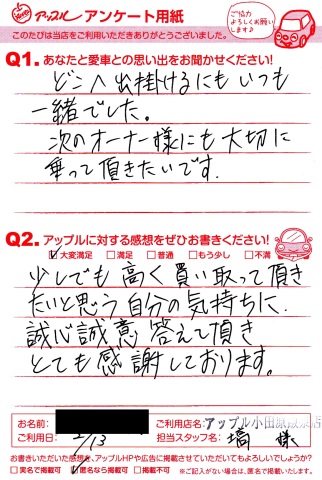 アップル アンケート用紙
ご協力
よろしくお願い
します♪
このたびは当店をご利用いただきありがとうございました。
Q1. あなたと愛車との思い出をお聞かせください!
どこへ出掛けるにもいつも
一緒でした。
次のオーナー様にも大切に
乗って頂きたいです。
Q2. アップルに対する感想をぜひお書きください!
☑大変満足 □満足 □普通 □もう少し □不満
少しでも高く買い取って頂き
たいと思う自分の気持ちに、
誠心誠意答えて頂き
とても感謝しております。
お名前:
ご利用店名:アップル小田原
ご利用日: 2/13
担当スタッフ名: 塙 様
お書きいただいた感想を、アップルHPや広告に掲載させていただいてもよろしいでしょうか?
□実名で掲載可 ☑匿名なら掲載可 □掲載不可 ※ご記入がない場合は、匿名で掲載いたします。